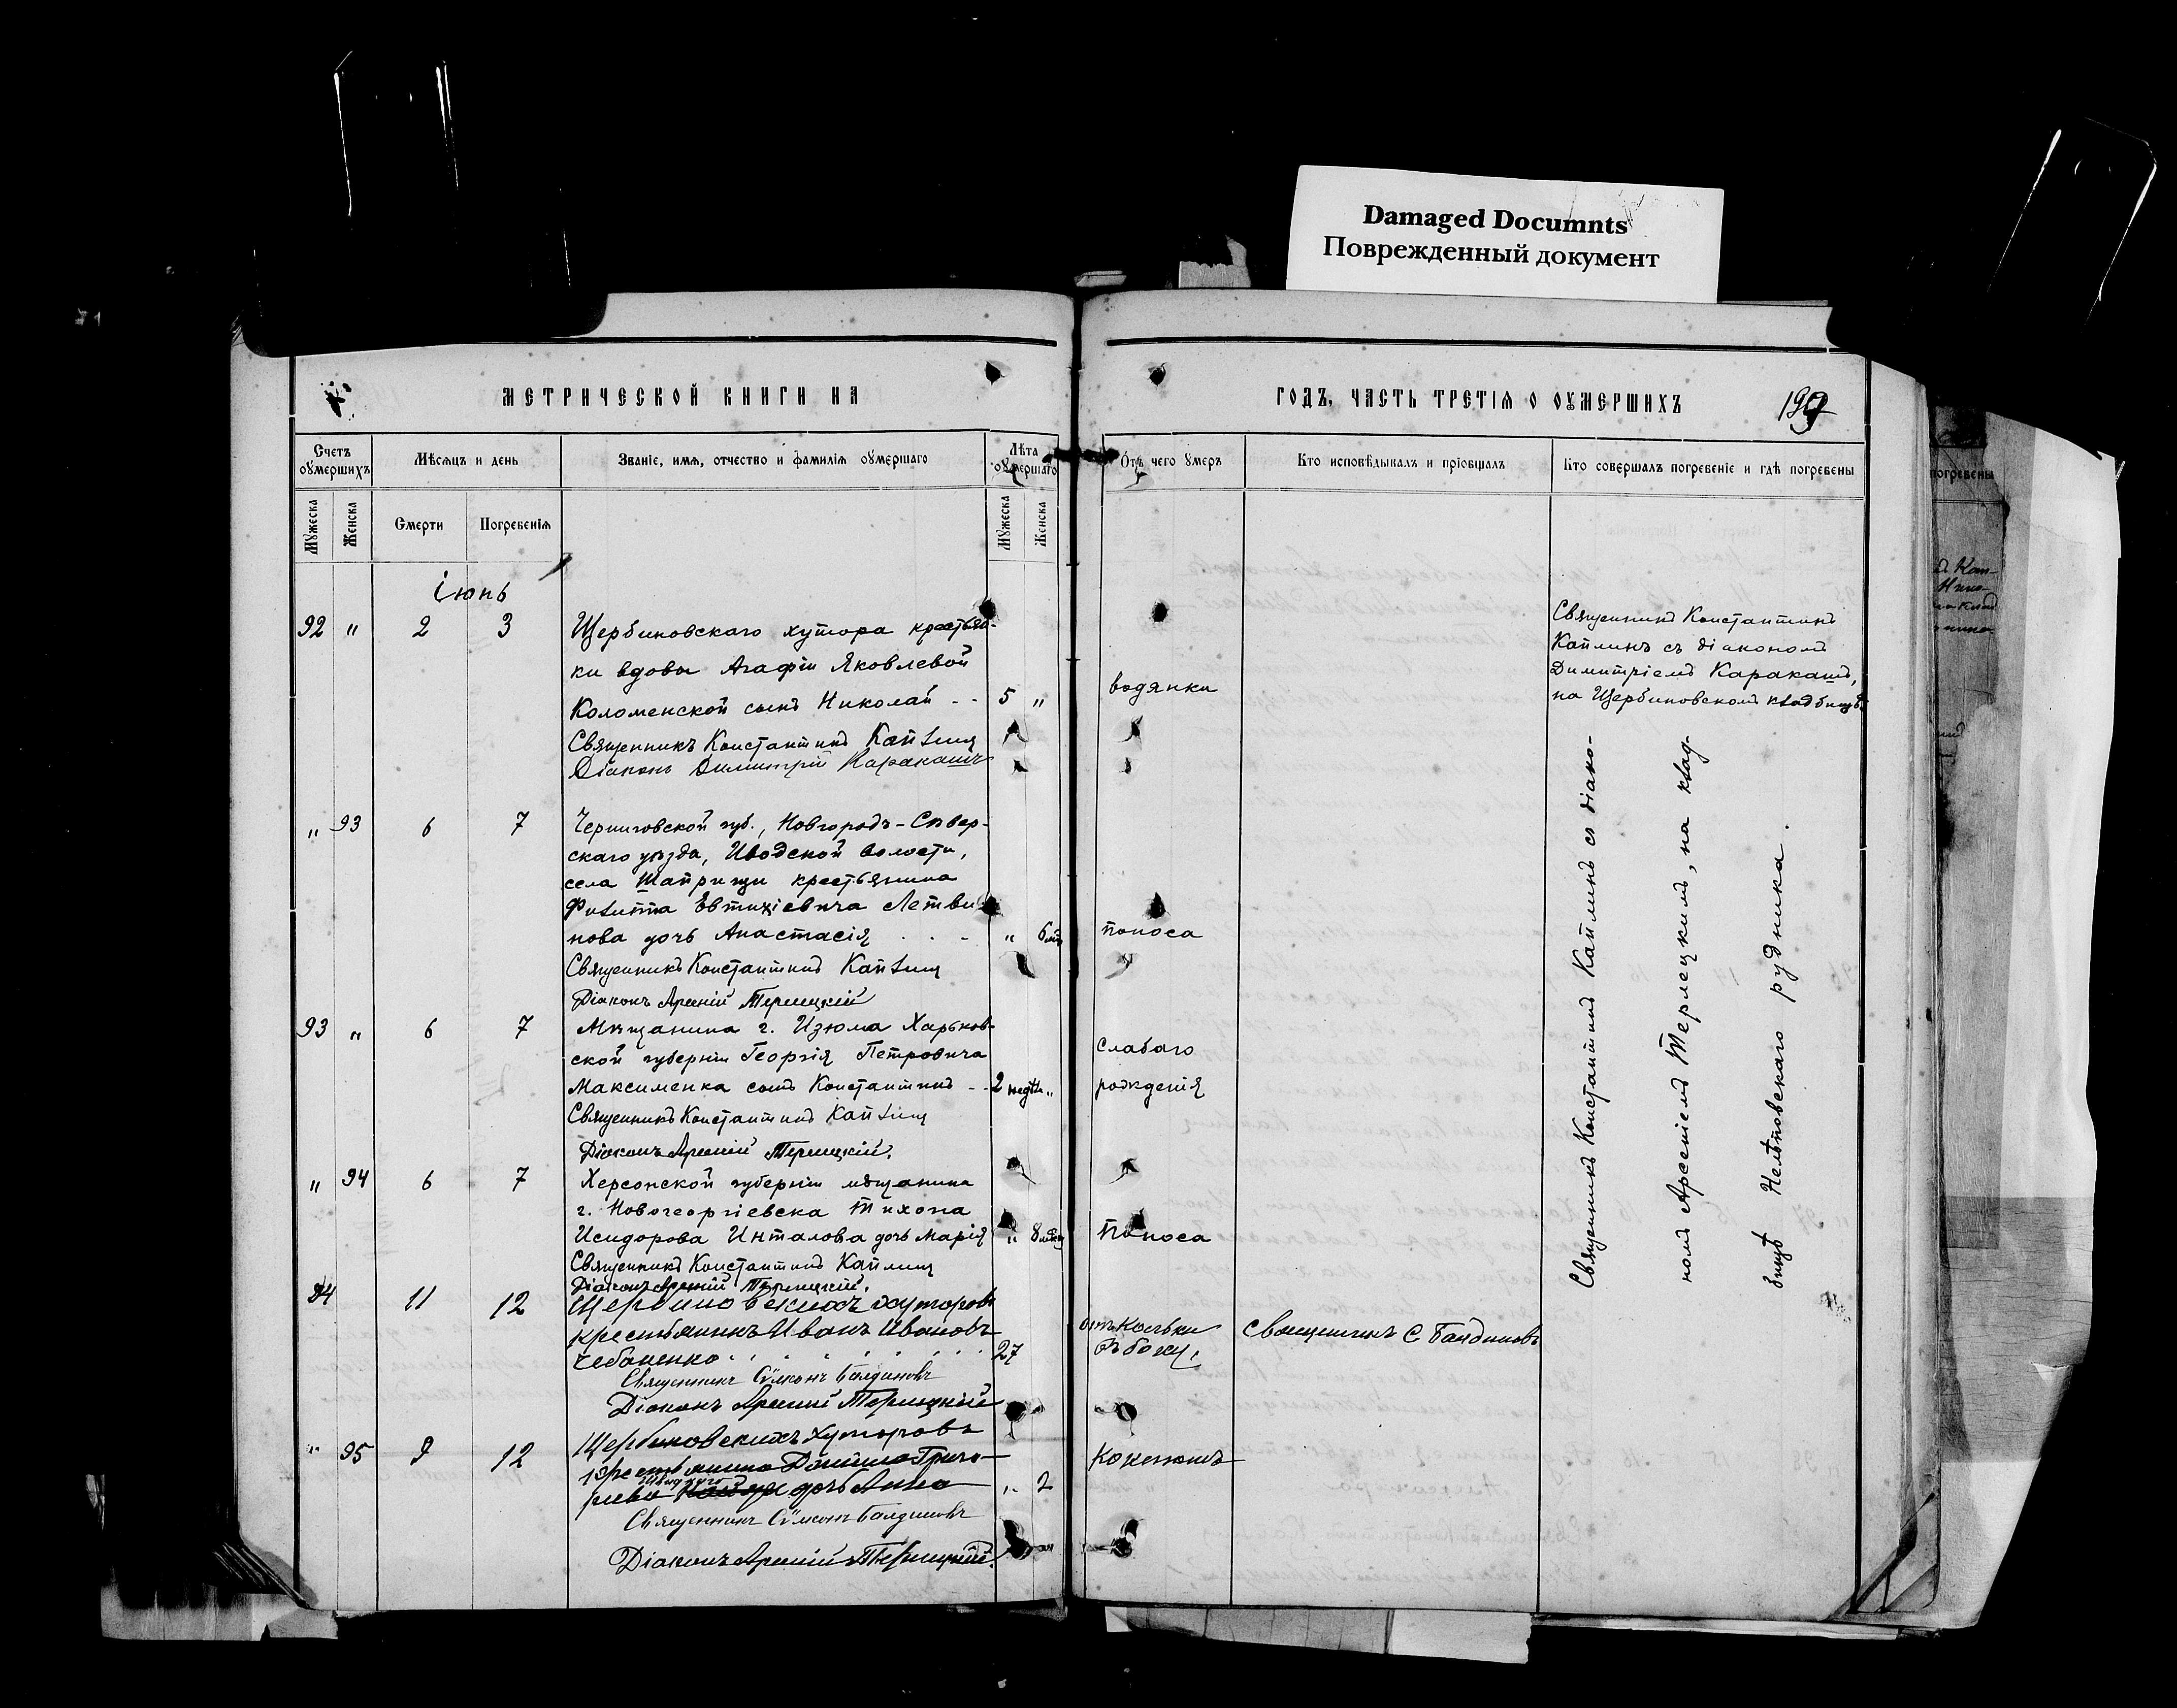 Damaged Documnts
Поврежденный документ
МЕТРИЧЕСКОЙ КНИГИ НА
ГОДЪ, ЧАСТЬ ТРЕТІЯ О ОУМЕРШИХЪ
Счетъ оумершихъ
Мѣсяцъ и день
Званіе, имя, отчество и фамилія оумершаго
Лѣта оумершаго
Отъ чего умеръ
Кто исповѣдывалъ и пріобщалъ
Кто совершалъ погребеніе и гдѣ погребены
Мужеска
Женска
Смерти
Погребенія
Мужеска
Женска
Іюнь
92 " 2 3 Щербиновскаго хутора крестьян-
ки вдовы Агафіи Яковлевой
Коломенской сынъ Николай - - 5 " водянки
Священникъ Константинъ Каплинъ
Діаконъ Димитрій Каракашъ
Священникъ Константинъ
Каплинъ съ діакономъ
Димитріемъ Каракашъ,
на Щербиновскомъ кладбищѣ
" 93 6 7 Черниговской губ., Новгородъ-Сѣвер-
скаго уѣзда, Иводской волости,
села крестьянина
Филиппа Евтихіевича Летви-
нова дочь Анастасія . . - " 6 мѣс поноса
Священникъ Константинъ Каплинъ
Діаконъ Арсеній Терлецкій
93 " 6 7 Мѣщанина г. Изюма Харьков-
ской губерніи Георгія Петровича
Максименка сынъ Константинъ - - 2 недѣли "
слабаго
рожденія
Священникъ Константинъ Каплинъ
Діаконъ Арсеній Терлецкій.
" 94 6 7 Херсонской губерніи мѣщанина
г. Новогеоргіевска Тихона
Исидорова дочь Марія " 8 поноса
Священникъ Константинъ Каплинъ
Діаконъ Арсеній Терлецкій.
Священникъ Константинъ Каплинъ съ діако-
номъ Арсеніемъ Терлецкимъ, на клад-
бищѣ Нелѣповскаго рудника.
94 11 12 Щербиновскихъ хуторовъ
крестьянинъ Иванъ Ивановъ
Чебаненко 27
отъ кольки
въ боку,
Священникъ С Балдиновъ
Священникъ Сѵмеонъ Балдиновъ
Діаконъ Арсеній Терлецкій
" 95 9 12 Щербиновскихъ хуторовъ
крестьянина Даніила Григо-
рьева дочь Анна " 2 коклюшъ
Священникъ Сѵмеонъ Балдиновъ
Діаконъ Арсеній Терлецкій.
погребены